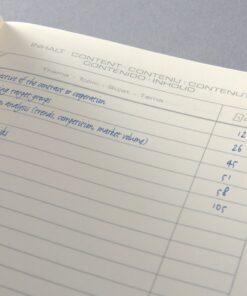 INHALT · CONTENT · CONTENU · CONTENUT
CONTENIDO · INHOUD
Thema · Topic · Sujet · Tema
of the contract or cooperation 12
target groups 26
analysis (trends, competition, market volume) 45
51
58
105